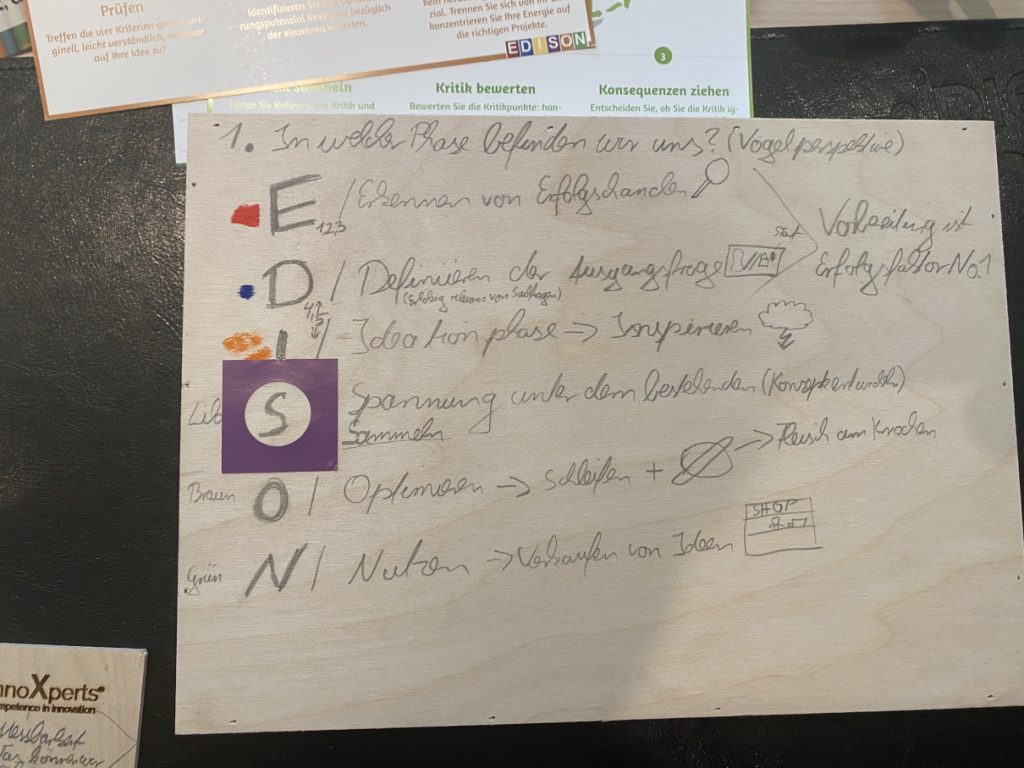 Prüfen
Treffen die vier Kriterien
ginell, leicht verständlich,
auf Ihre Idee zu?
Identifizieren Sie
rungspotenzial Ihrer Idee bezüglich
der einzelnen Kriterien.
zial. Trennen Sie sich von
konzentrieren Sie Ihre Energie auf
die richtigen Projekte.
EDISON
3
Kritik bewerten
Bewerten Sie die Kritikpunkte: han-
Konsequenzen ziehen
Entscheiden Sie, ob Sie die Kritik ig-
1. In welcher Phase befinden wir uns? (Vogelperspektive)
E / Erkennen von Erfolgschancen
1,2,3
Start
Vorbereitung ist
Erfolgsfaktor No.1
D / Definieren der Ausgangsfrage
4,5
I / Ideation phase => Inspirieren
Lila
S
Spannung unter dem bestehenden (Konzepte entwickeln)
Sammeln
Braun O / Optimieren -> Schleifen + -> Fleisch am Knochen
Grün N / Nutzen -> Verkaufen von Ideen
SHOP
nnoXperts®
mpetence in innovation